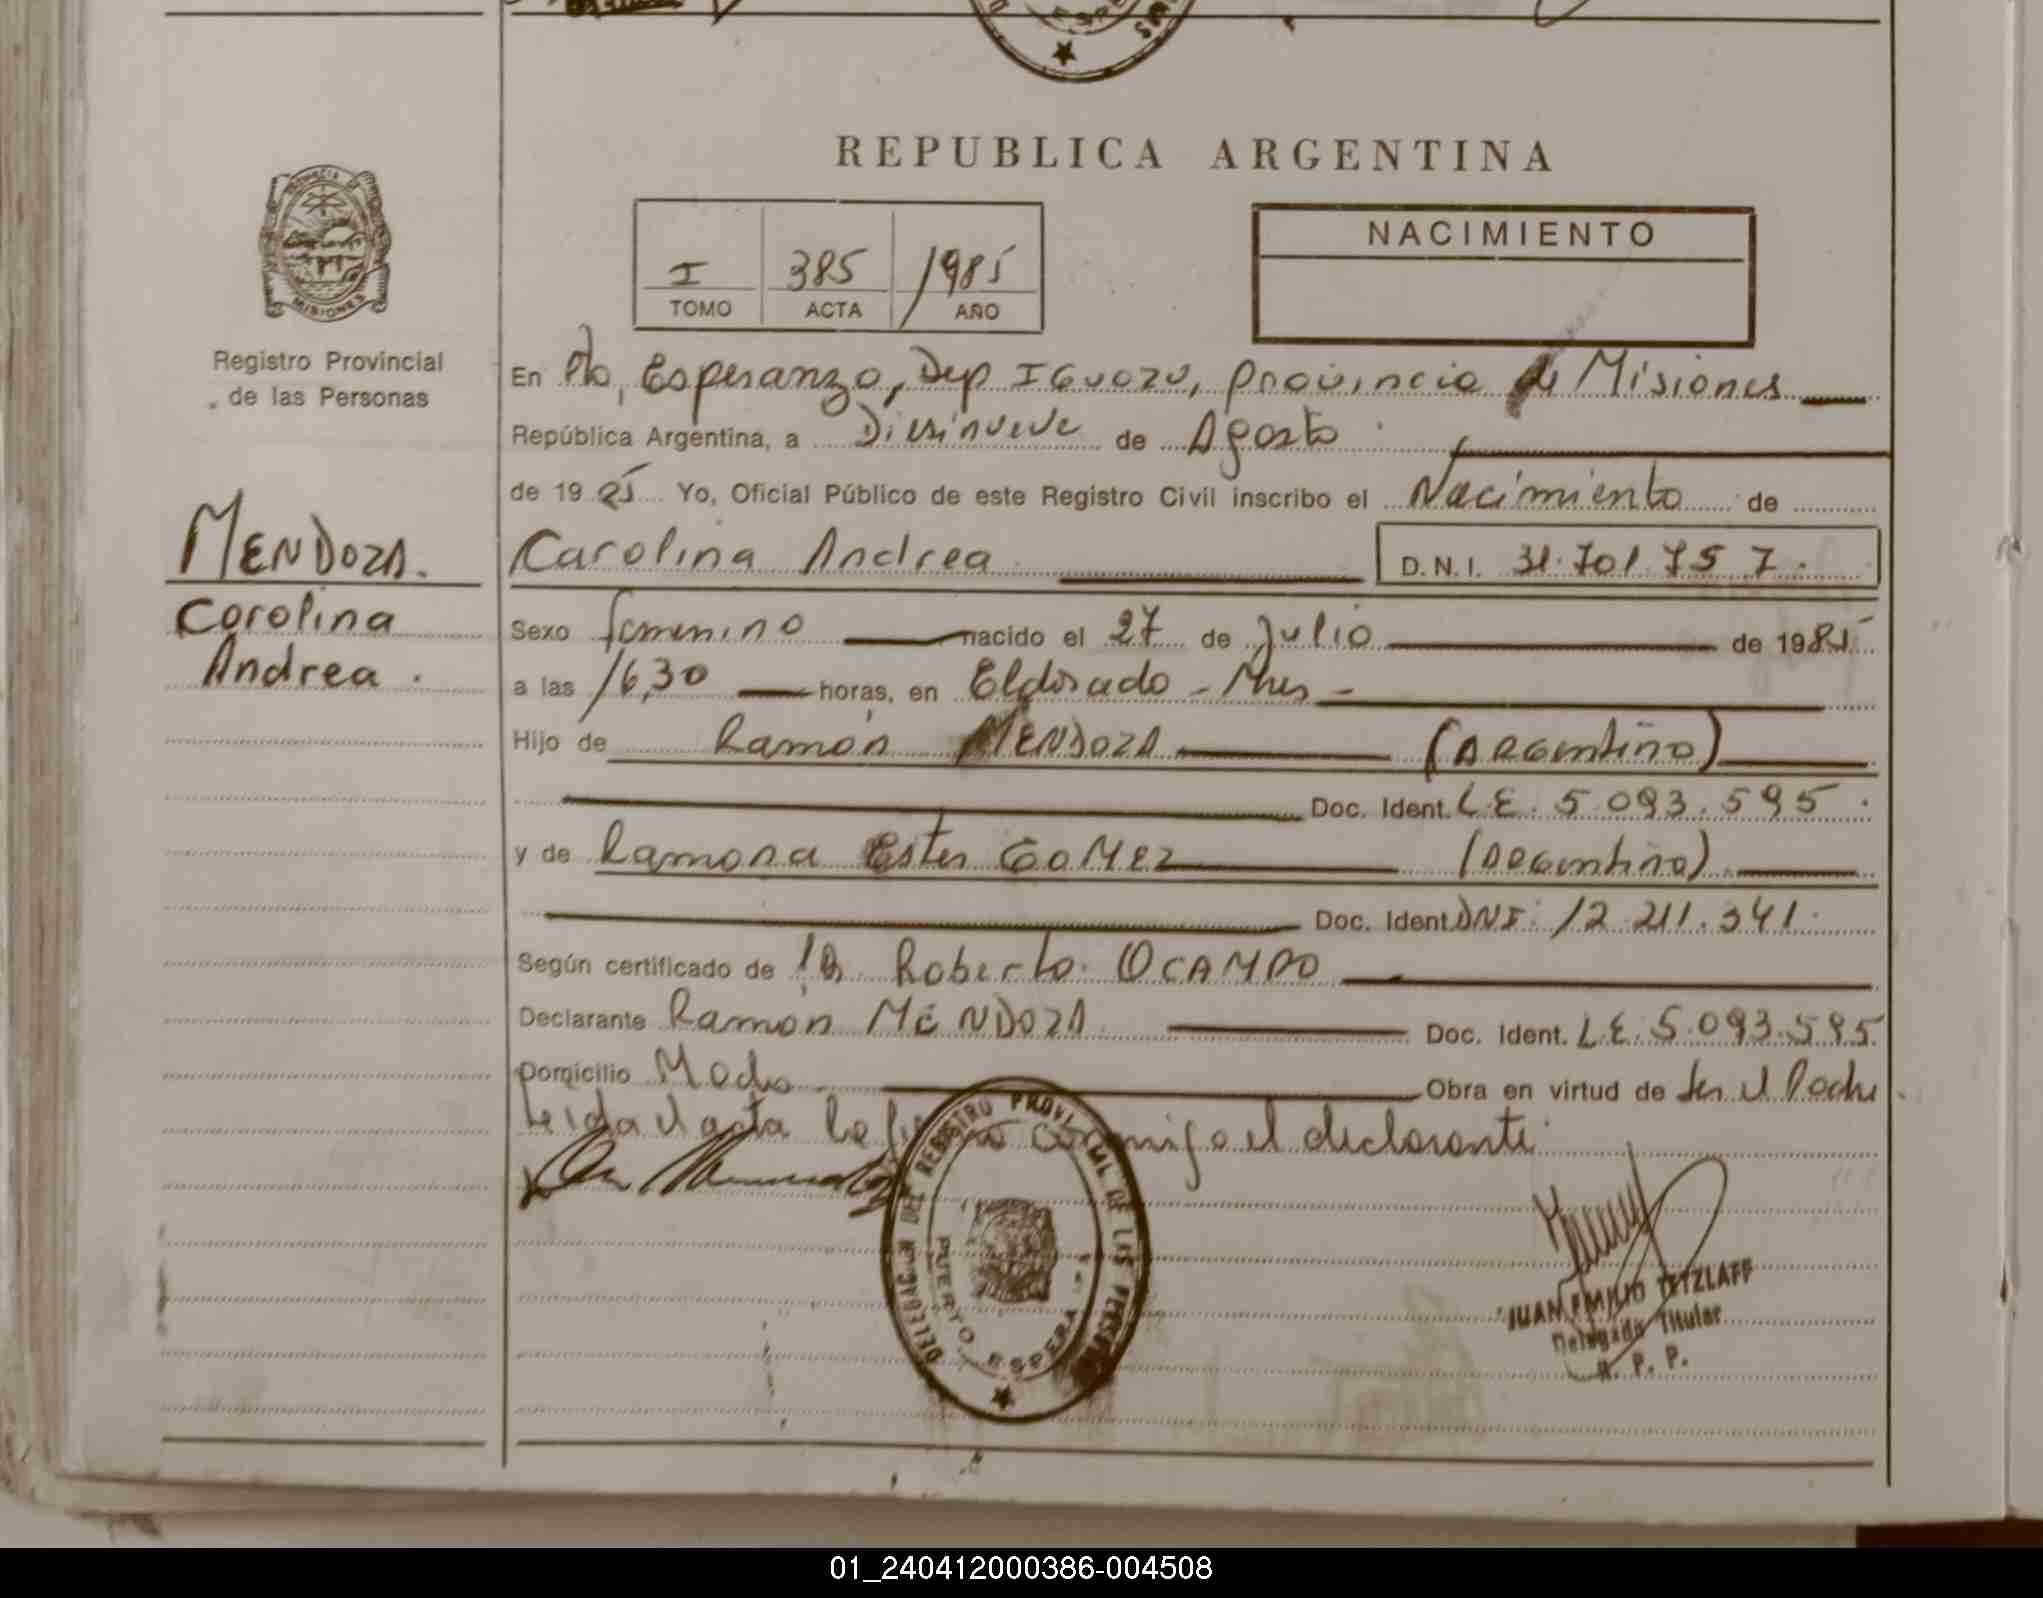 REPUBLICA ARGENTINA
PROVINCIA DE
MISIONES
Registro Provincial
de las Personas
I 385 1985
TOMO ACTA AÑO
NACIMIENTO
En Pto, Esperanza, Dep IGUAZU, Provincia de Misiones
República Argentina, a Diesinueve de Agosto
de 19 85 Yo, Oficial Público de este Registro Civil inscribo el Nacimiento de
MENDOZA.
Carolina
Andrea.
Carolina Andrea D.N.I. 31.701.757.
Sexo femenino nacido el 27 de Julio de 1985
a las 16,30 horas, en Eldorado - Mnes -
Hijo de Ramón MENDOZA (Argentino)
Doc. Ident. L.E. 5.093.595.
y de Ramona Ester GOMEZ (Argentina)
Doc. Ident. DNI: 12.211.341.
Según certificado de Roberto OCAMPO
Declarante Ramon MENDOZA Doc. Ident. L.E. 5.093.595.
Domicilio Obra en virtud de Ser el Padre
Leida el acta la firma conmigo el declarante.
DELEGACION DEL REGISTRO PROVINCIAL DE LAS PERSONAS
PUERTO ESPERANZA
JUAN EMILIO TETZLAFF
Delegado Titular
R. P. P.
01_240412000386-004508